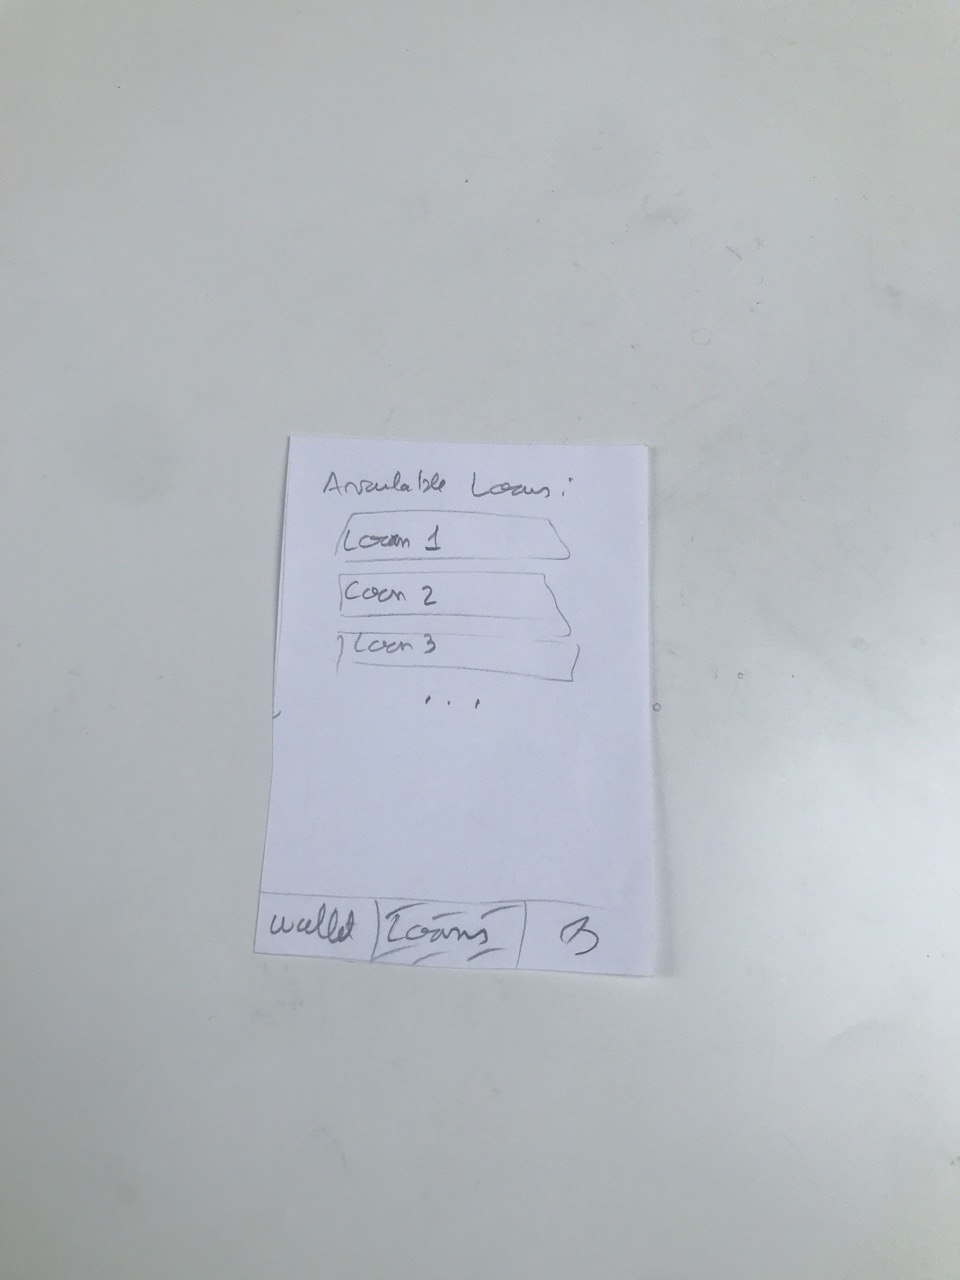 Available Loans:
Loan 1
Loan 2
Loan 3
...
Wallet Loans